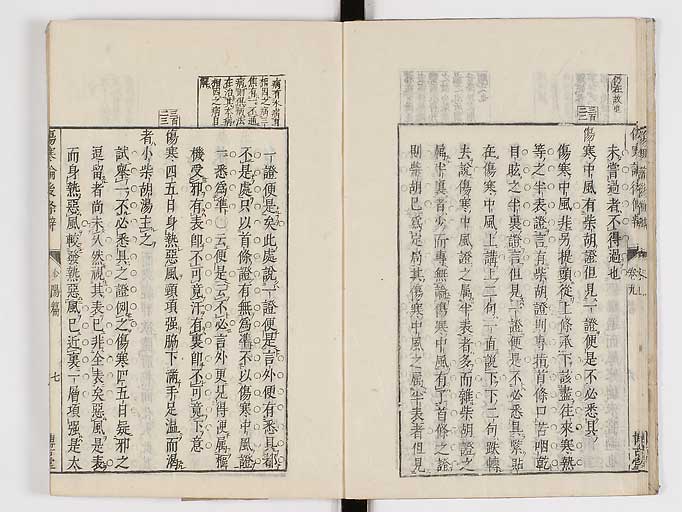 未嘗過者不得過也
傷寒中風有柴胡證但見一證便是不必悉具
傷寒中風非另提頭從上條承下該盡往來寒熱
等之半表證言有柴胡證則專指首條口苦咽乾
目眩之半裏證言但見一證便是不必悉具緊貼
在傷寒中風上講上三句一直說下下二句跌轉
去說傷寒中風證之屬半表者多而雜柴胡證之
屬半裏者少而專無論傷寒中風有了首條之證
則柴胡已為定局其傷寒中風之屬半表者但見
病有未病有
相因之病二
一證便是矣此處說一證便是言外便有悉具都
不是處只以首條證有無為準不以傷寒中風證
一悉為準云便是云不必言外更見得便屬樞
機受邪有表卽不可竟汗有裏卽不可竟下意
傷寒四五日身熱惡風頸項强脇下滿手足溫而渴
者小柴胡湯主之
試舉一不必悉具之證例之傷寒四五日疑邪之
逗留者尚未久然視其表已非全表矣惡風是表
而身熱惡風較發熱惡風已近裏一層項强是太
傷寒論後條辨
少陽篇
七
卷九